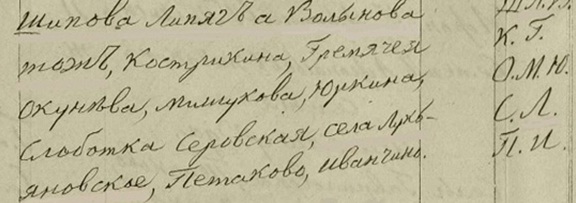 Шипова Липягъ а Волынова
тожъ, Кострихина, Гремячея К. Г.
Окунѣва, Мишукова, Юркина, О. М. Ю.
Слоботка Серовская, села Лукь- С. Л.
яновское, Петаково, Иванчино. П. И.